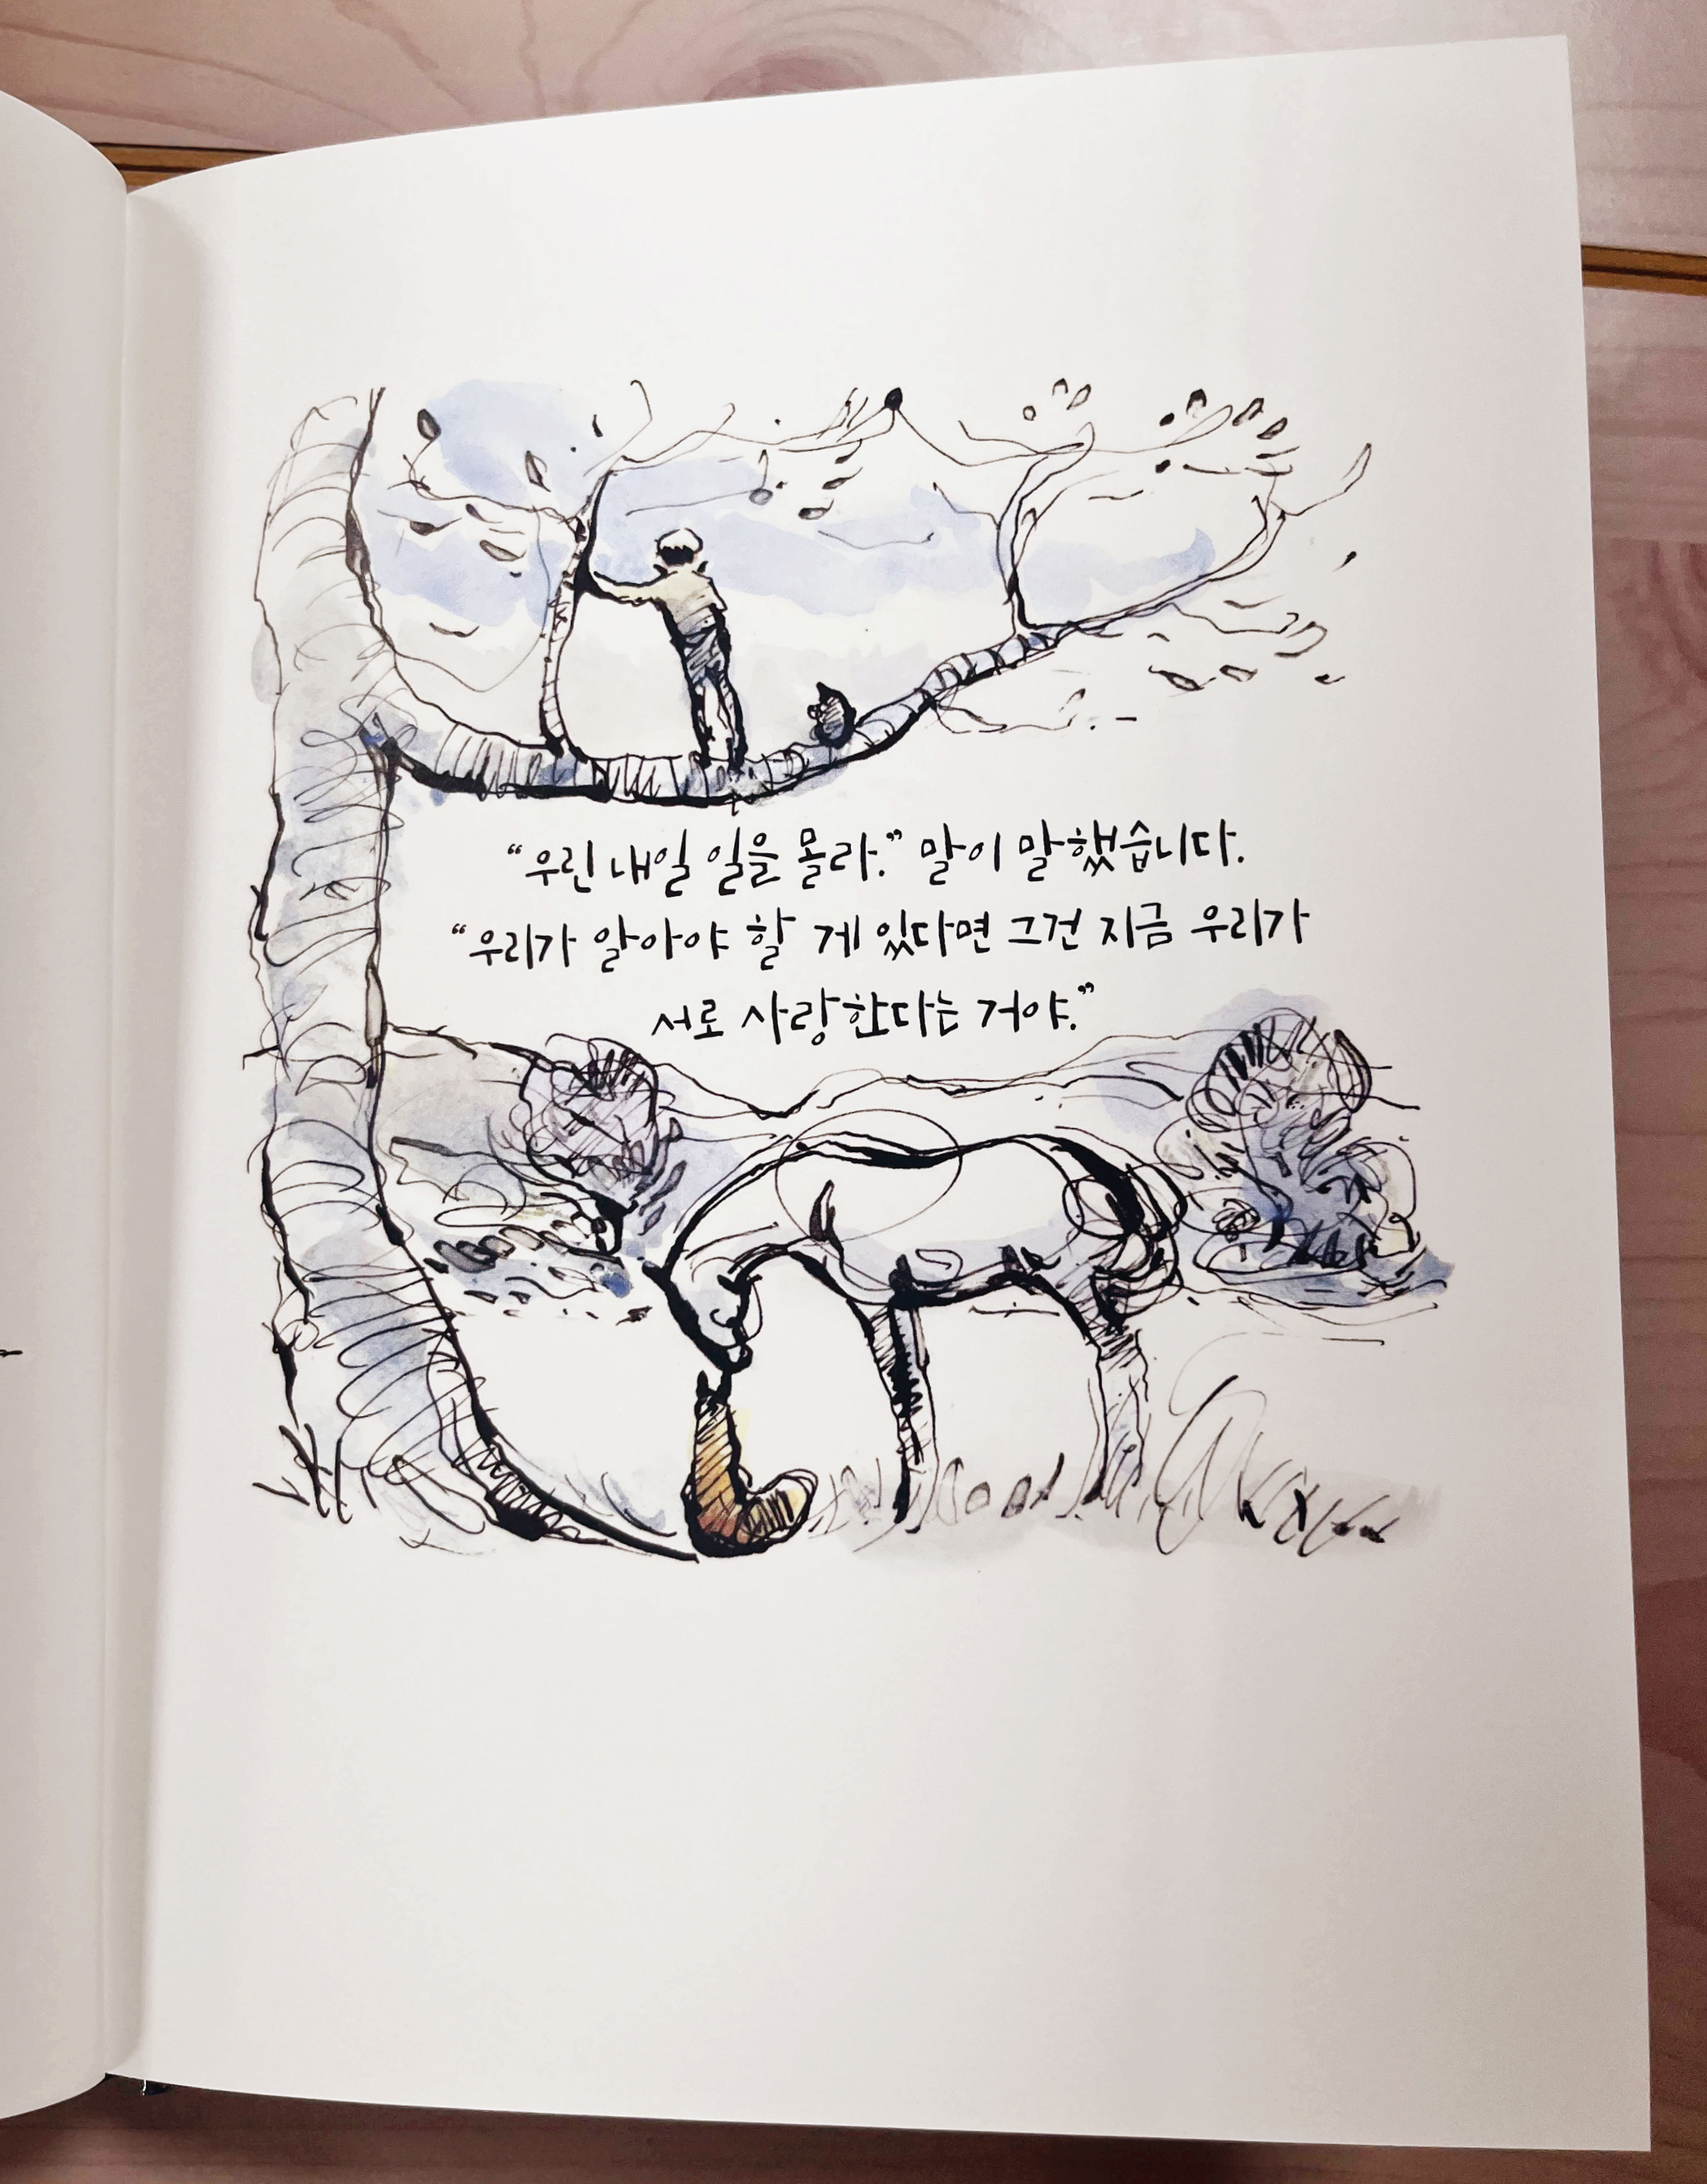 “우린 내일 일을 몰라.” 말이 말했습니다.
“우리가 알아야 할 게 있다면 그건 지금 우리가
서로 사랑한다는 거야.”